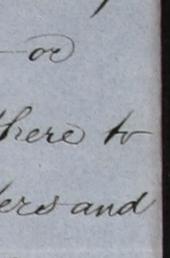 or
there to
ers and